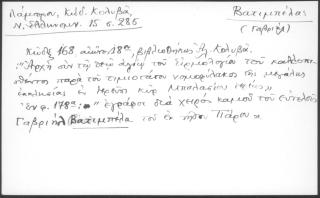 Λάμπρου, Κώδ. Κολυβᾶ,
Ν. Ἑλληνομν. 15 σ. 286
Βατιμπέλας
(Γαβριήλ)
Κῶδιξ 168 αἰῶνος 18ου, βιβλιοθήκης Ἀλ. Κολυβᾶ.
"Ἀρχὴ σὺν τῇ θεῷ ἁγίῳ τοῦ Εἱρμολογίου τοῦ καλλωπι-
σθέντος παρὰ τοῦ τιμιωτάτου νομοφύλακος τῆς μεγάλης
ἐκκλησίας ἐκ κὺρ Μπαλασίου ἱερέως"
Ἐν φ. 178α: " ἐγράφη διὰ χειρὸς κἀμοῦ τοῦ εὐτελοῦς
Γαβριὴλ Βατιμπέλα τοῦ ἐκ νήσου Πάρου"